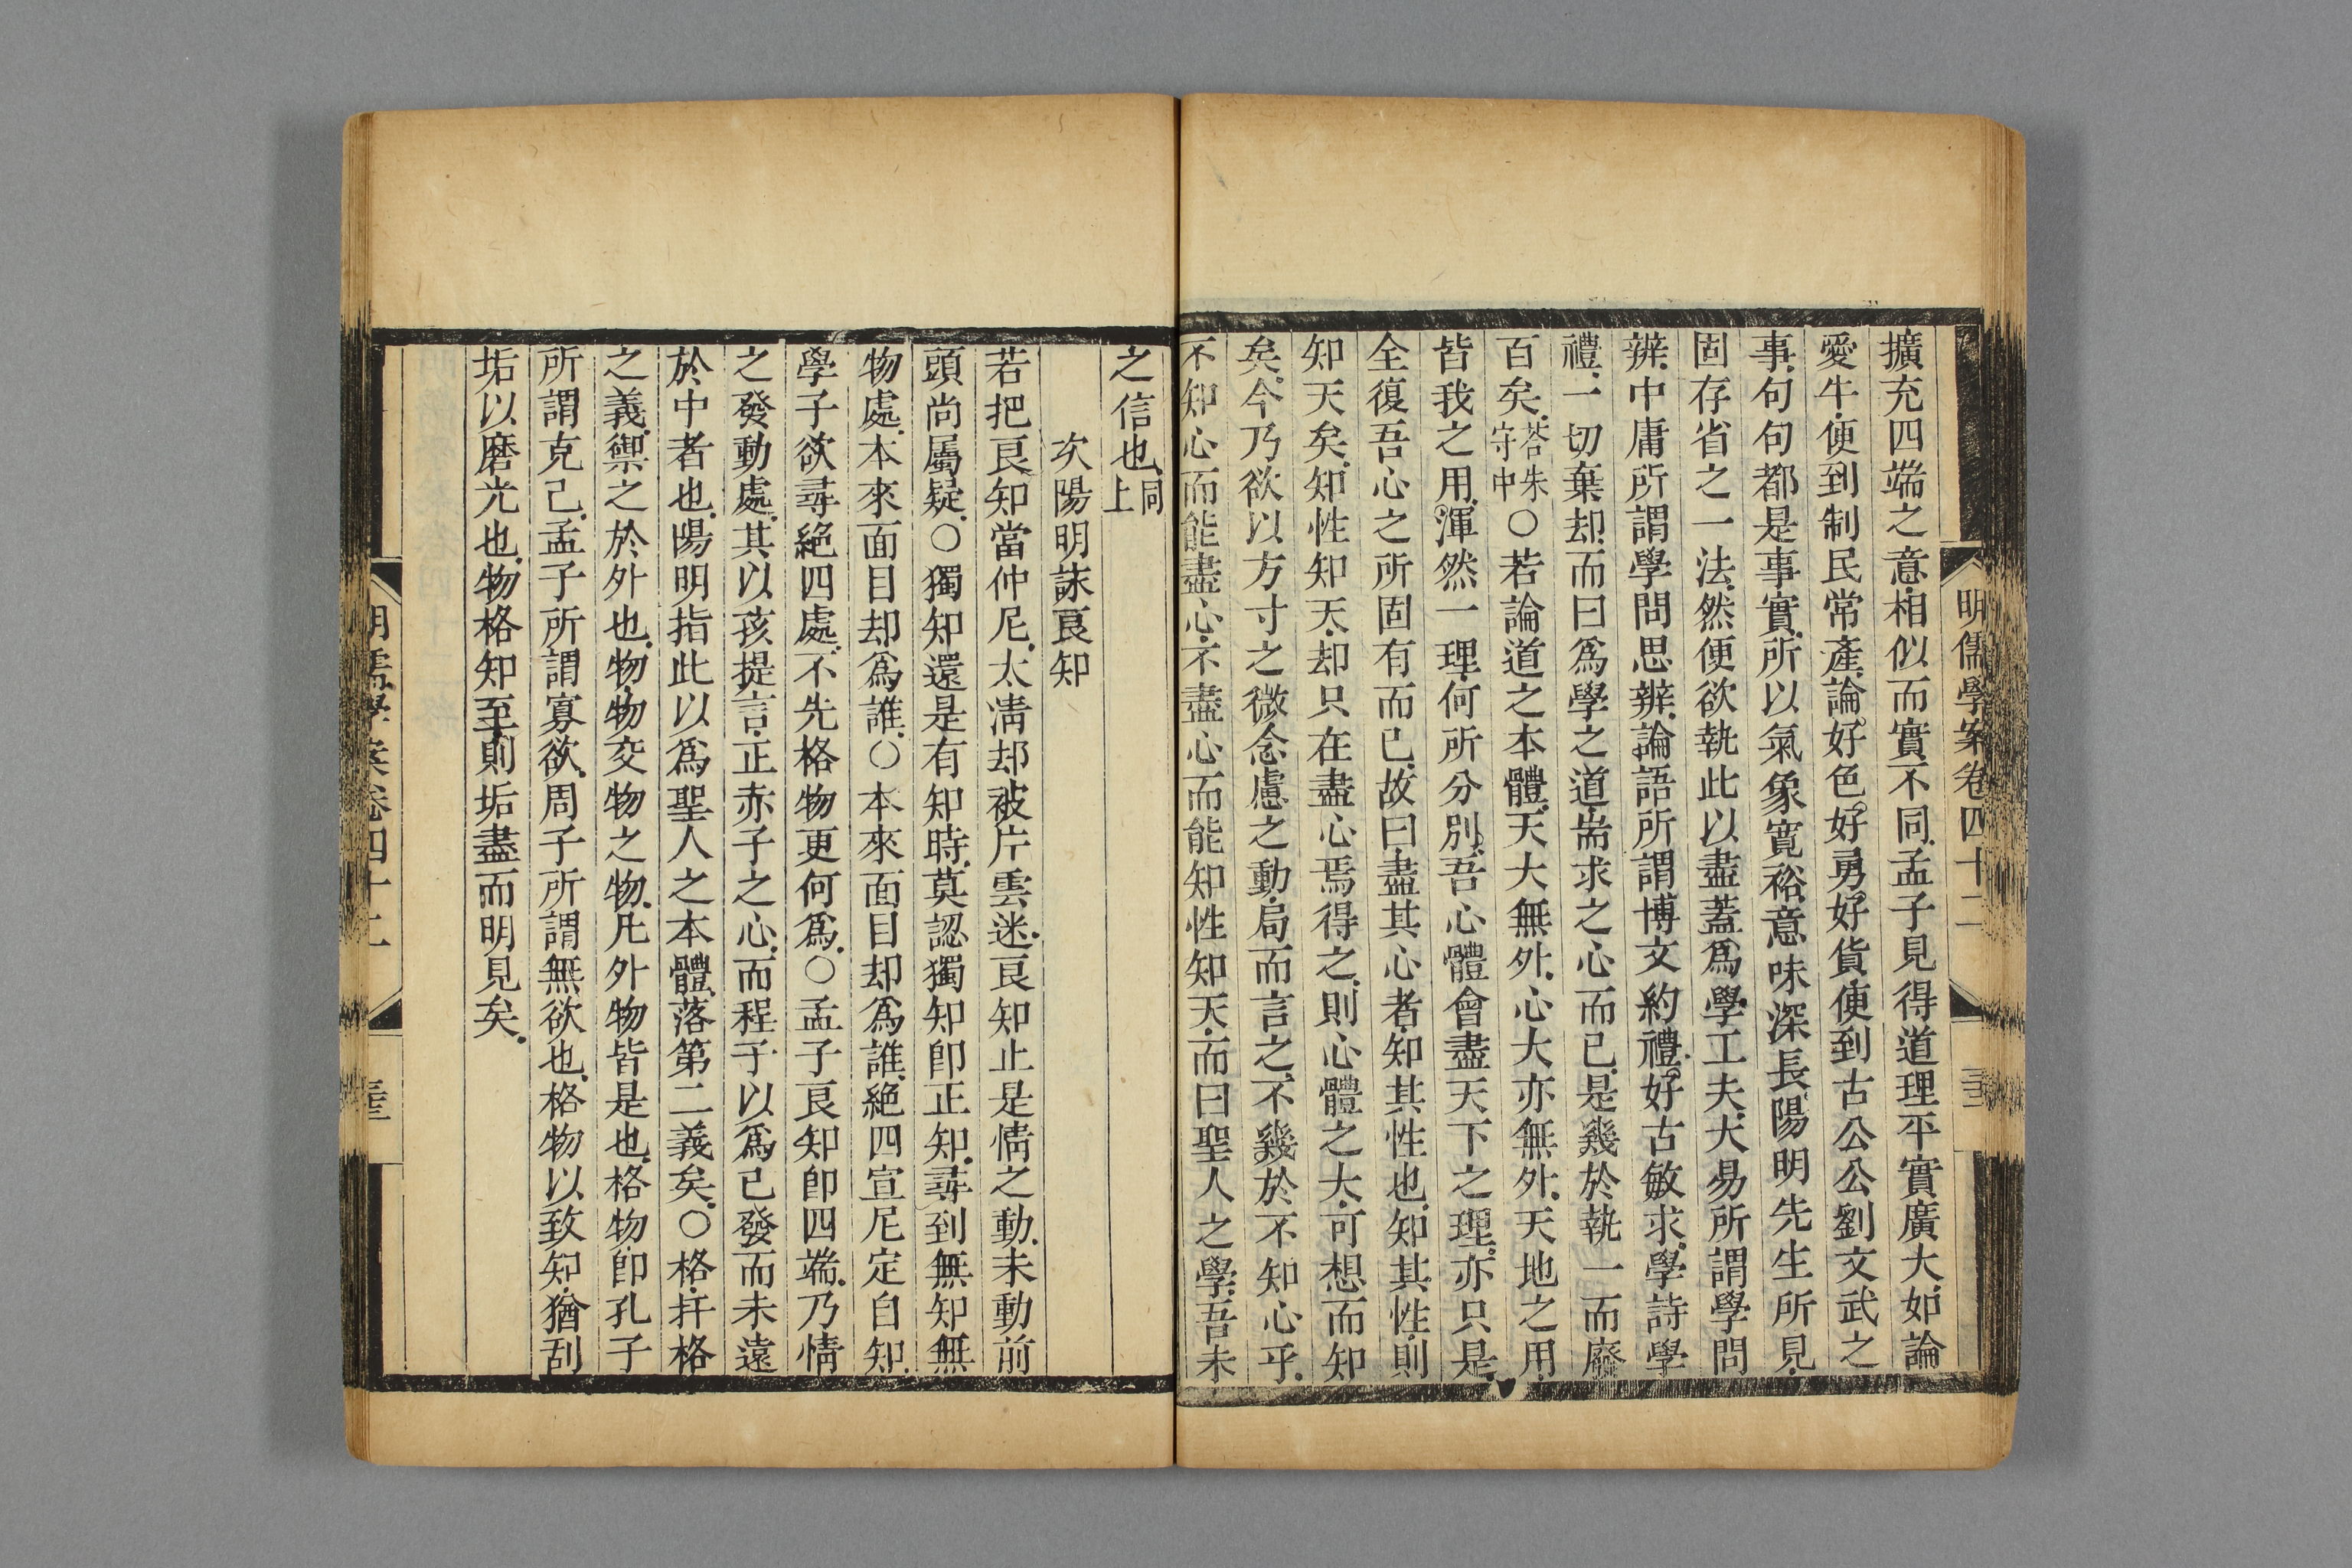 明儒學案卷四十二
擴充四端之意相似而實不同孟子見得道理平實廣大如論
愛牛便到制民常產論好色好勇好貨便到古公公劉文武之
事句句都是事實所以氣象寬裕意味深長陽明先生所見
固存省之一法然便欲執此以盡蓋爲學工夫大易所謂學問
辨中庸所謂學問思辨論語所謂博文約禮好古敏求學詩學
禮一切棄却而曰爲學之道耑求之心而已是幾於執一而廢
百矣答朱守中○若論道之本體天大無外心大亦無外天地之用
皆我之用渾然一理何所分別吾心體會盡天下之理亦只是
全復吾心之所固有而已故曰盡其心者知其性也知其性則
知天矣知性知天却只在盡心焉得之則心體之大可想而知
矣今乃欲以方寸之微念慮之動局而言之不幾於不知心乎
不知心而能盡心不盡心而能知性知天而曰聖人之學吾未
之信也同上
次陽明詠良知
若把良知當仲尼太淸却被片雲迷良知止是情之動未動前
頭尚屬疑○獨知還是有知時莫認獨知卽正知尋到無知無
物處本來面目却爲誰○本來面目却爲誰絕四宣尼定自知
學子欲尋絕四處不先格物更何爲○孟子良知卽四端乃情
之發動處其以孩提言正赤子之心而程子以爲已發而未遠
於中者也陽明指此以爲聖人之本體落第二義矣○格扞格
之義禦之於外也物物交物之物凡外物皆是也格物卽孔子
所謂克己孟子所謂寡欲周子所謂無欲也格物以致知猶刮
垢以磨光也物格知至則垢盡而明見矣
明儒學案卷四十二